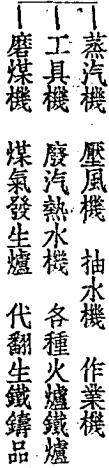 蒸汽機　壓風機　抽水機　作業機
工具機　廢汽熱水機　各種火爐鐵爐
磨煤機　煤氣發生爐　代翻生鐵鑄品